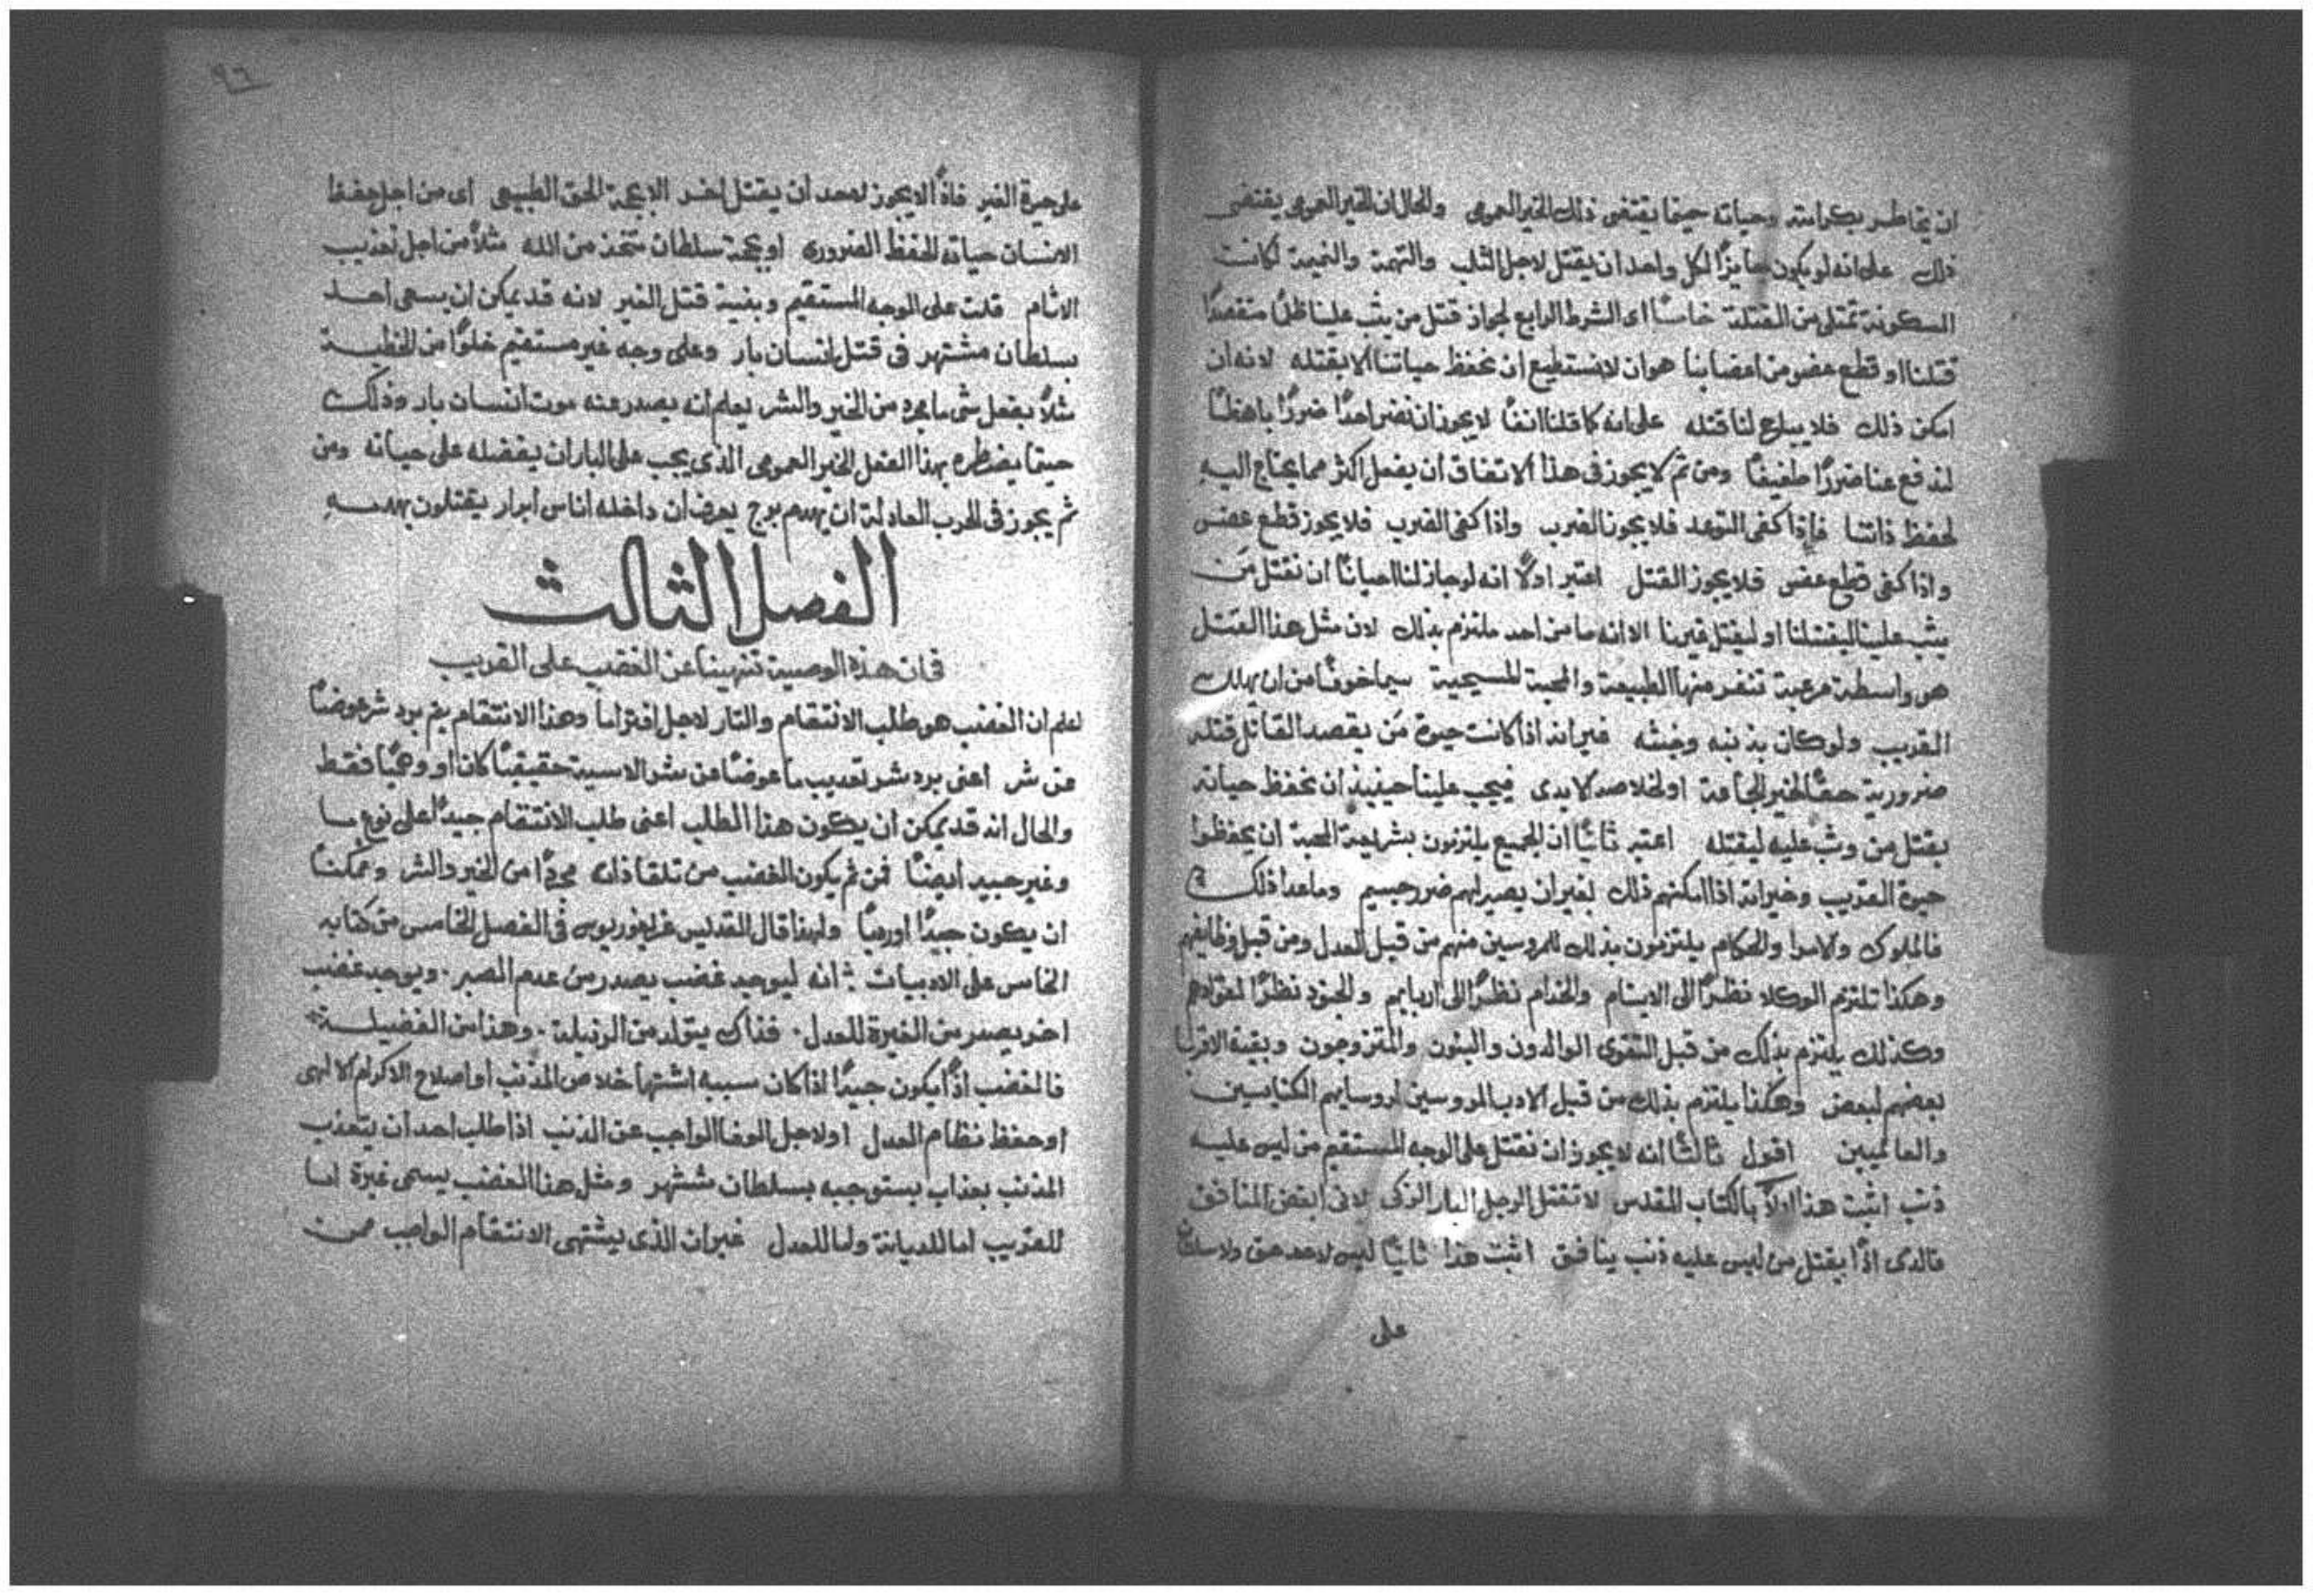 ان يخاطر بكرامته وحياته حينما يقتضى ذلك الخير العمومى والحال ان الخير العمومى يقتضى
ذلك على انه لو يكون جايزًا لكل واحد ان يقتل لاجل الثلب والتهمة والنميمة لكانت
المسكونة تمتلى من القتلة خامسًا اى الشرط الرابع لجواز قتل من يثب علينا ظلمًا متقصدًا
قتلنا او قطع عضو من اعضاينا هو ان لا نستطيع ان نحفظ حياتنا الا بقتله لانه ان
امكن ذلك فلا يباح لنا قتله على انه كما قلنا انفًا لا يجوز ان نضر احدًا ضررًا باهظًا
لندفع عنا ضررًا طفيفًا ومن ثم لا يجوز فى هذا الاتفاق ان يفعل اكثر مما يحتاج اليه
لحفظ ذاتنا فاذا كفى التوعد فلا يجوز الضرب واذا كفى الضرب فلا يجوز قطع عضو
واذا كفى قطع عضو فلا يجوز القتل اعتبر اولًا انه لو جاز لنا احيانًا ان نقتل من
يثب علينا ليقتلنا او ليقتل غيرنا الا انه ما من احد ملتزم بذلك لان مثل هذا القتل
هو واسطة مرعبة تنفر منها الطبيعة والمحبة المسيحية سيما خوفًا من ان يهلك
القريب ولو كان بذنبه وخبثه غير انه اذا كانت حيوة من يقصد القاتل قتله
ضرورية حقًا لخير الجماعة او لخلاصه الابدى فيجب علينا حينيذ ان نحفظ حياته
بقتل من وثب عليه ليقتله اعتبر ثانيًا ان الجميع يلتزمون بشريعة المحبة ان يحفظوا
حيوة القريب وخيراته اذا امكنهم ذلك بغير ان يصير لهم ضرر جسيم وما عدا ذلك
فالملوك والامرا والحكام يلتزمون بذلك للمروسين منهم من قبل العدل ومن قبل وظايفهم
وهكذا تلتزم الوكلا نظرًا الى الايتام والخدام نظرًا الى اربابهم والجنود نظرًا لقوادهم
وكذلك يلتزم بذلك من قبل التقوى الوالدون والبنون والمتزوجون وبقية الاقربا
بعضهم لبعض وهكذا يلتزم بذلك من قبل الادب المروسين لروسايهم الكنايسيين
والعالميين اقول ثالثًا انه لا يجوز ان نقتل على الوجه المستقيم من ليس عليه
ذنب اثبت هذا اولًا بالكتاب المقدس لا تقتل الرجل البار الزكى لانى ابغض المنافق
فالذى اذًا يقتل من ليس عليه ذنب ينافق اثبت هذا ثانيًا ليس لاحد حق ولا سلطان
على
٩٦
على حيوة الغير فاذًا لا يجوز لاحد ان يقتل اخر الا بحجة الحق الطبيعى اى من اجل حفظ
الانسان حياته الحفظ الضرورى او بحجة سلطان متخذ من الله مثلًا من اجل تعذيب
الاثام قلت على الوجه المستقيم وبنية قتل الغير لانه قد يمكن ان يسعى احد
بسلطان مشتهر فى قتل انسان بار وعلى وجه غير مستقيم خلوًا من الخطية
مثلًا بفعل شى ما مجرد من الخير والشر يعلم انه يصدر عنه موت انسان بار وذلك
حينما يضطره بهذا الفعل الخير العمومى الذى يجب على البار ان يفضله على حياته ومن
ثم يجوز فى الحرب العادلة ان يهدم برج يعرف ان داخله اناس ابرار يقتلون بهدمه
الفصل الثالث
فى ان هذه الوصية تنهينا عن الغضب على القريب
اعلم ان الغضب هو طلب الانتقام والثار لاجل افترا ما وهذا الانتقام يتم برد شر عوضًا
عن شر اعنى برد شر تعذيب ما عوضًا عن شر الاسية حقيقيًا كان او وهميًا فقط
والحال انه قد يمكن ان يكون هذا المطلب اعنى طلب الانتقام جيدًا على نوع ما
وغير جيد ايضًا فمن ثم يكون الغضب من تلقا ذاته مجردًا من الخير والشر وممكنًا
ان يكون جيدًا او رديًا ولهذا قال القديس غريغوريوس فى الفصل الخامس من كتابه
الخامس على الادبيات انه ليوجد غضب يصدر من عدم الصبر ويوجد غضب
اخر يصدر من الغيرة للعدل فذاك يتولد من الرذيلة وهذا من الفضيلة
فالغضب اذًا يكون جيدًا اذا كان سببه اشتها خلاص المذنب او اصلاح الاكرام الالهى
او حفظ نظام العدل او لاجل الوفا الواجب عن الذنب اذا طلب احد ان يتعذب
المذنب بعذاب يستوجبه بسلطان مشتهر ومثل هذا الغضب يسمى غيرة اما
للقريب اما للديانة واما للعدل غير ان الذى يشتهى الانتقام الواجب ممن